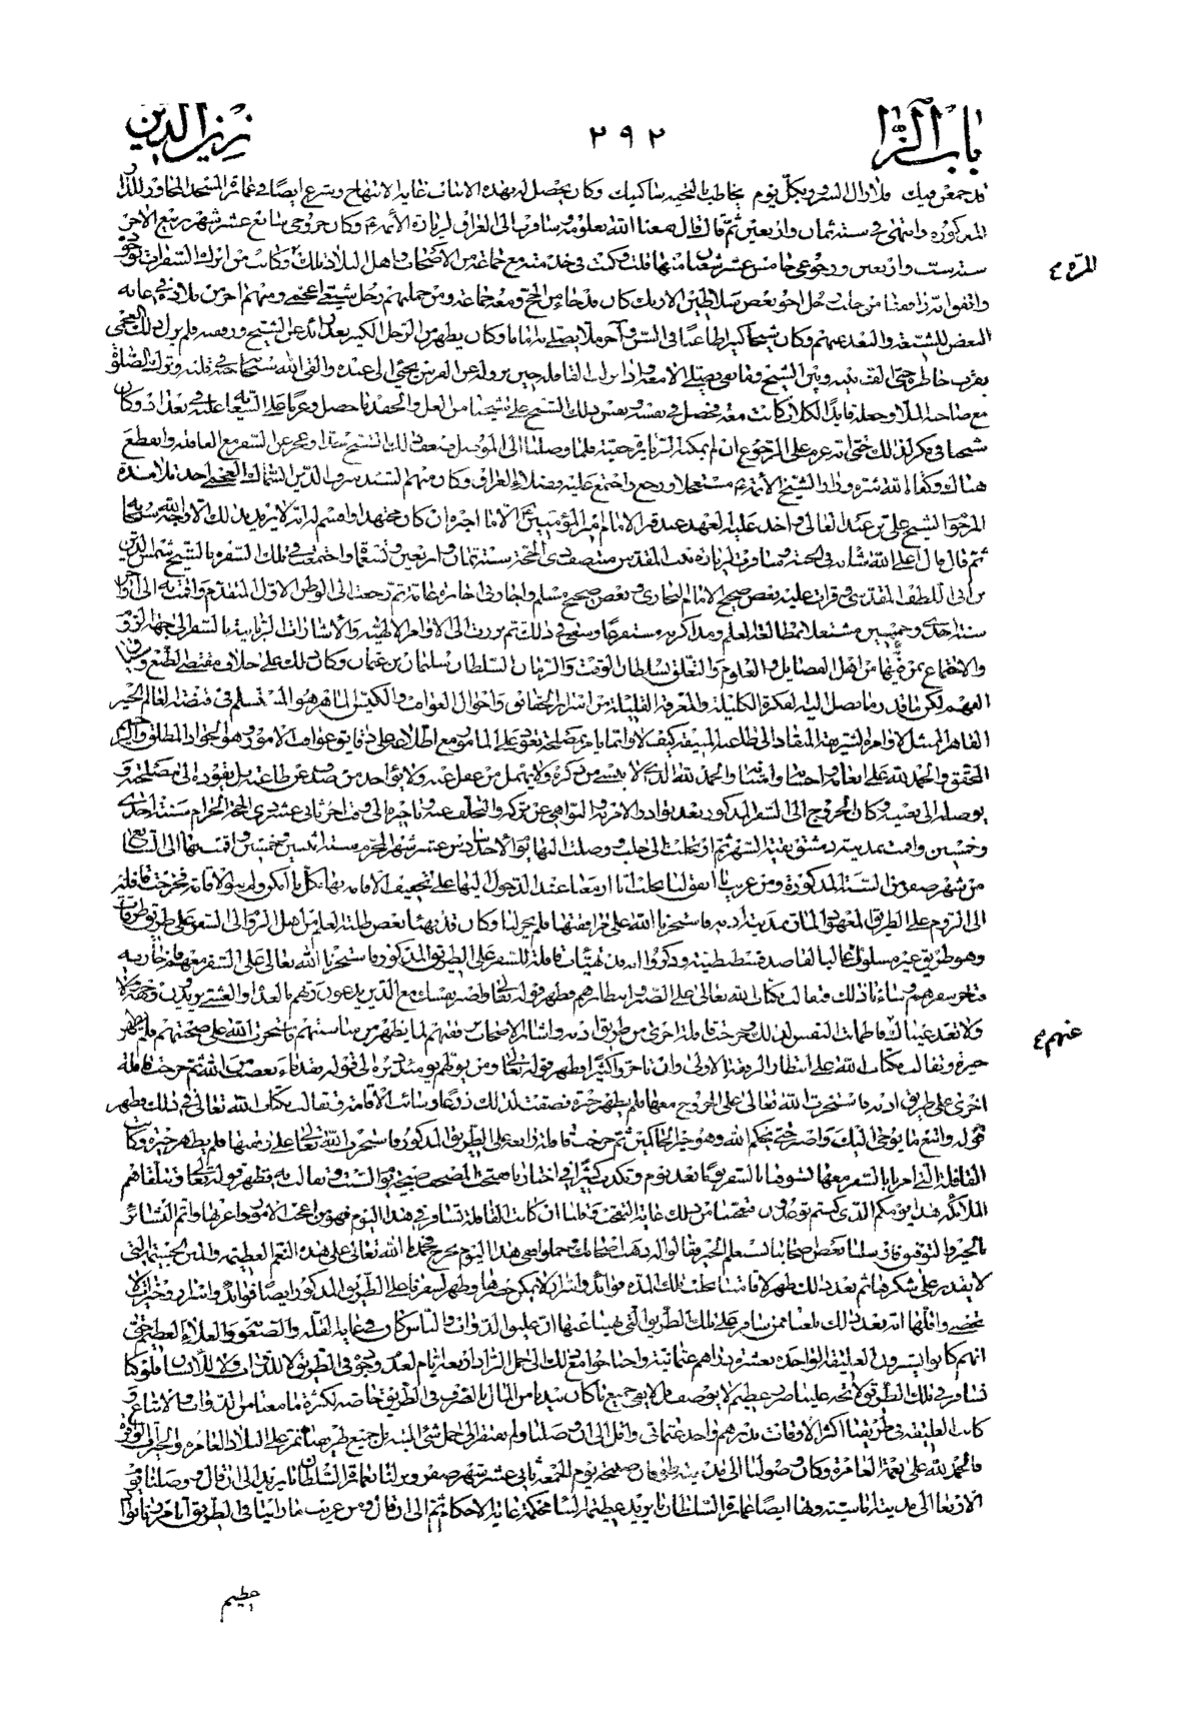 باب الزا
٢٩٢
زين الدين
قد جمعن فيك فلا زال السرور بكل يوم يخاطب بالتحية ساكنيك وكان يحصل له بهذه الابيات غاية الابتهاج وشرع ايضا في عمارة المسجد المجاور للدار
المذكورة وانتهى في سنة ثمان واربعين ثم قال قال معنا الله بعلومه وسافرنا الى العراق لزيارة الأئمة ع وكان خروجي سابع عشر شهر ربيع الآخر
سنة ست واربعين ورجوعي خامس عشر شعبان منها قلت وكنت في خدمته مع جماعة من الاصحاب واهل البلاد تلك وكانت من ابرك السفرات
المرة ع
واتفق انه رافقنا من حلب رجل اخو بعض سلاطين الازبك كان قد جاء من الحج ومعه جماعة ومن جملتهم رجل شيعي اعجمي ومنهم آخر من ملاده في غاية
البغض للشيعة والبعد عنهم وكان شيخا كبيرا طاعنا في السن وآخر ملا يصلي به اماما وكان يظهر من الرجل الكبير بعد زائد عن الشيخ ورفقته فلم يزل ذلك العجمي
يقرب خاطره حتى الف بينه وبين الشيخ
مع صاحبه الملا وجعله قائد الكلاب كانت معه فحصل في نفسه ونفس ذلك الشيخ على شيخنا من الغل والحقد ما حصل وعزما على السعاية عليه في بغداد وكان
شيخنا في فكر لذلك حتى انه عزم على الرجوع ان لم يمكنه الزيارة خفية فلما وصلنا الى الموصل ضعف ذلك الشيخ وعجز عن السفر مع القافلة وانقطع
هناك وكفاه الله شره وزار الشيخ الأئمة ع مستعجلا ورجع واجتمع عليه فضلاء العراق وكان منهم السيد شرف الدين السماك العجمي احد تلامذة
المرحوم الشيخ علي بن عبد العالي واخذ عليه العهد عند قبر الامام امير المؤمنين الا ما اخبره ان كان مجتهدا واقسم له انه لا يريد بذلك الا وجه الله سبحانه
ثم قال قال اعلى الله شأنه في الجنة وسافرت لزيارة بيت المقدس منتصف ذي الحجة سنة ثمان واربعين وتسعمائة واجتمعت في تلك السفرة بالشيخ شمس الدين
بن ابي اللطف المقدسي وقرأت عليه بعض صحيح الامام البخاري وبعض صحيح مسلم واجازني اجازة عامة ثم رجعت الى الوطن الاول المتقدم واقمت به الى اواخر
سنة احدى وخمسين مشتغلا بمطالعة العلم ومذاكرته مستفرغا وسعي في ذلك ثم برزت الى الاوامر الالهية والاشارات الربانية بالسفر الى جهة الروم
والاجتماع بمن فيها من اهل الفضائل والعلوم والتعلق بسلطان الوقت والزمان السلطان سليمان بن عثمان وكان ذلك على خلاف مقتضى الطبع وسياق
الفهم لكن ما قدر وما تصل اليه الفكرة الكليلة والمعرفة القليلة من اسرار الحقائق واحوال العواقب والكيس الماهر هو المستسلم في قبضة العالم الخبير
القاهر الممتثل لاوامره الشريفة المنقاد الى طاعته المنيفة كيف لا وانما يأمر بمصلحة تعود على المأمور مع اطلاعه على دقائق عواقب الامور وهو الجواد المطلق والرحيم
المحقق والحمد لله على انعامه واحسانه وامتنانه والحمد لله الذي لا ينسى من ذكره ولا يهمل من غفل عنه ولا يؤاخذ من صدف عن طاعته بل يقوده الى مصلحته و
يوصله الى بغيته وكان الخروج الى السفر المذكور بعد بوادر الاوامر به والنواهي عن تركه والتخلف عنه وتأخيره الى وقت آخر ثاني عشر ذي الحجة الحرام سنة احدى
وخمسين واقمت بمدينة دمشق بقية الشهر ثم ارتحلت الى حلب ووصلت اليها يوم الاحد سادس عشر شهر المحرم سنة اثنين وخمسين واقمت بها الى السابع
من شهر صفر من السنة المذكورة ومن غريب ما اتفق لنا بحلب انا ازمعنا عند الدخول اليها على تخفيف الاقامة بها بكل ما امكن ولم ننو الاقامة فخرجت قافلة
الى الروم على الطريق المعهود المار بمدينة ادنه فاستخرنا الله على مرافقتها فلم يخر لنا وكان قد تهيأ بعض طلبة العلم من اهل الروم الى السفر على طريق طوقات
وهو طريق غير مسلوك غالبا لقاصد قسطنطينية وذكروا انه قد تهيأت قافلة للسفر على الطريق المذكور فاستخرنا الله تعالى على السفر معهم فاخار به
فتأخر سفرهم وساءنا ذلك فتفألت بكتاب الله تعالى على الصبر وانتظارهم فظهر قوله تعالى واصبر نفسك مع الذين يدعون ربهم بالغداة والعشي يريدون وجهه ولا
ولا تعد عيناك عنهم فاطمأنت النفس لذلك وخرجت قافلة اخرى من طريق ادنه واشار الاصحاب برفقتهم لما يظهر من مناسبتهم فاستخرت الله على صحبتهم فلم يظهر
عنهم ع
خيرة وتفألت بكتاب الله على انتظار الرفقة الاولى وان تأخروا كثيرا فظهر قوله تعالى ومن يولهم يومئذ دبره الى قوله فقد باء بغضب من الله ثم خرجت قافلة
اخرى على طريق ادنه فاستخرت الله تعالى على الخروج معها فلم يظهر خيرة فضقت لذلك ذرعا وسئمت الاقامة وتفألت بكتاب الله تعالى في ذلك فظهر
قوله واتبع ما يوحى اليك واصبر حتى يحكم الله وهو خير الحاكمين ثم خرجت قافلة رابعة على الطريق المذكور فاستخرت الله تعالى على رفقتها فلم يظهر خيرة وكانت
القافلة التي امرنا بالسفر معها تسوفنا بالسفر يوما بعد يوم وتكذب كثيرا في اخبارها ففتحت المصحف صبيحة يوم السبت وتفألت به فظهر قوله تعالى وتتلقاهم
الملائكة هذا يومكم الذي كنتم توعدون فتعجبنا من ذلك غاية العجب وقلنا ان كانت القافلة تسافر في هذا اليوم فهو من اعجب الامور واغربها واتم البشائر
بالخير والتوفيق فارسلنا بعض اصحابنا يستعلم الخبر فقالوا له اذهب الى اصحابك فليحملوا ففي هذا اليوم نخرج فحمدنا الله تعالى على هذه النعم العظيمة والمنن الجسيمة التي
لا نقدر على شكرها ثم بعد ذلك ظهر لاقامتنا بحلب تلك المدة فوائد واسرار لا يمكن حصرها وظهر لسفرنا على الطريق المذكور ايضا فوائد واسرار وخيرات لا
تحصى واقلها انه بعد ذلك بلغنا ممن سافر على تلك الطريق التي نهينا عنها ان عليق الدواب والناس كان في غاية القلة والصعوبة والغلاء العظيم حتى
انهم كانوا يشترون العليقة الواحدة بعشرة دراهم عثمانية واحتاجوا مع ذلك الى حمل الزاد اربعة ايام لعدم وجوده في الطريق لا للدواب ولا للانسان فلو كنا
نسافر في تلك الطريق لاتجه علينا ضرر عظيم لا يوصف فلا يفي جميع ما كان بيدنا من المال بالصرف في الطريق خاصة لكثرة ما معنا من الدواب والاتباع و
كانت العليقة في طريقنا اكثر الاوقات بدرهم واحد عثماني واقل الى ان وصلنا ولم نفتقر الى حمل شيء البتة بل جميع طريقنا نمر على البلاد العامرة والخيرات الوافرة
فالحمد لله على نعمه الغامرة وكان وصولنا الى مدينة طوقات صبيحة يوم الجمعة ثاني عشر شهر صفر ونزلنا بعمارة السلطان بايزيد الى ان قال ووصلنا يوم
الاربعا الى مدينة اماسية وبها ايضا عمارة السلطان بايزيد عظيمة البناء محكمة غاية الاحكام ثم الى ان قال ومن غريب ما رأينا في الطريق
عظيم